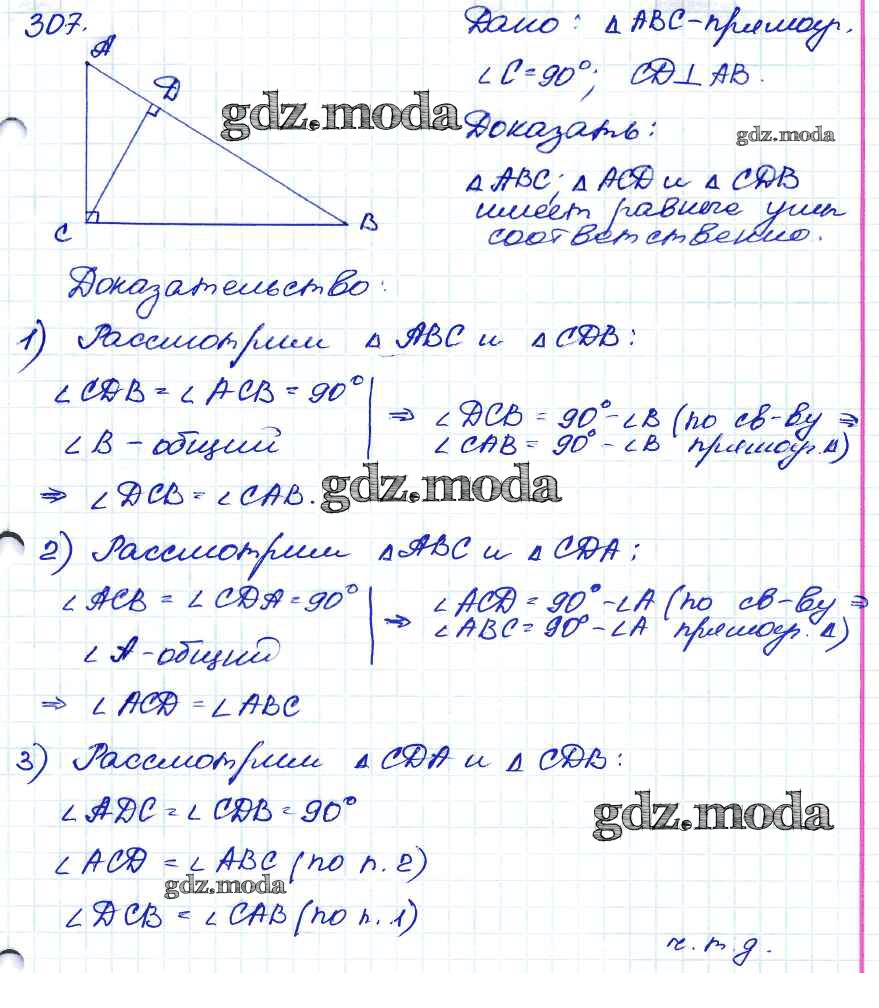 307.
Дано: △ ABC - прямоуг.
∠C = 90°; CD ⊥ AB.
A
D
C
B
gdz.moda
Доказать:
gdz.moda
△ ABC; △ ACD и △ CDB
имеет равные углы
соответственно.
Доказательство:
1) Рассмотрим △ ABC и △ CDB:
∠CDB = ∠ACB = 90°
∠B - общий
⇒ ∠DCB = 90° - ∠B (по св-ву ⇒
∠CAB = 90° - ∠B прямоуг.△)
⇒ ∠DCB = ∠CAB.
gdz.moda
2) Рассмотрим △ABC и △CDA;
∠ACB = ∠CDA = 90°
∠A - общий
⇒ ∠ACD = 90° - ∠A (по св-ву ⇒
∠ABC = 90° - ∠A прямоуг. △)
⇒ ∠ACD = ∠ABC
3) Рассмотрим △CDA и △ CDB:
∠ADC = ∠CDB = 90°
gdz.moda
∠ACD = ∠ABC (по п. 2)
gdz.moda
∠DCB = ∠CAB (по п. 1)
ч.т.д.